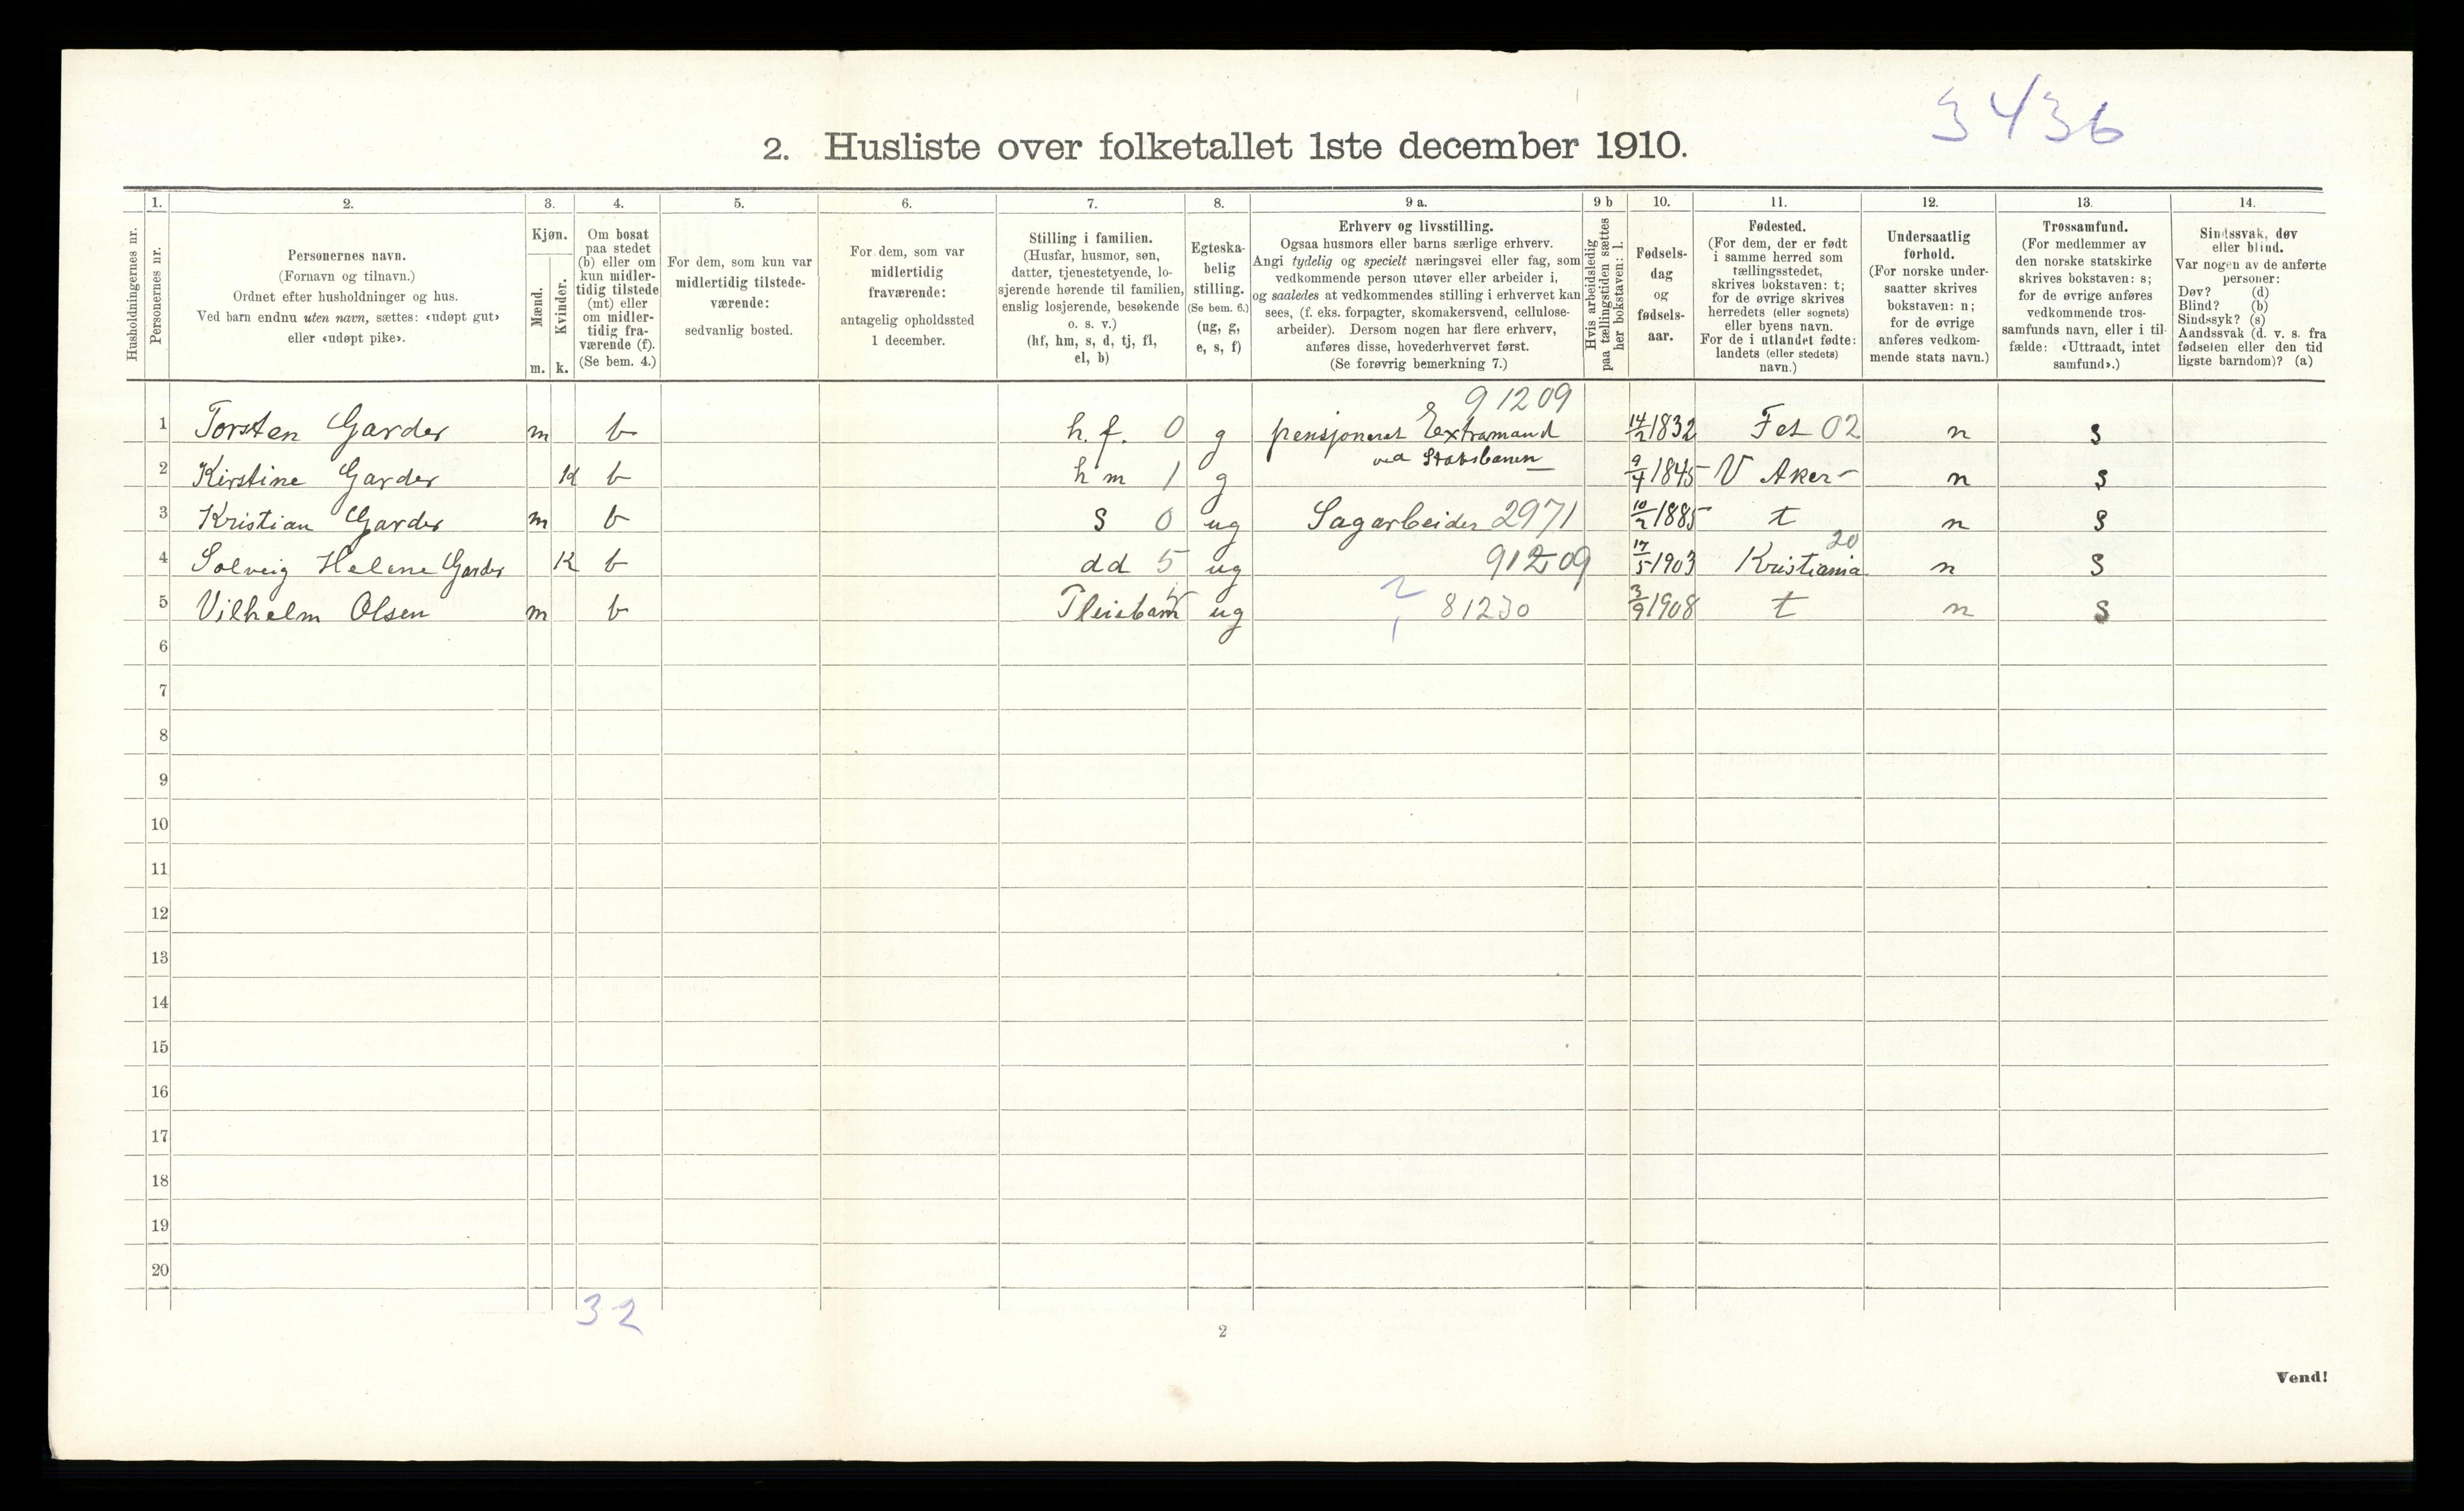 3436
2. Husliste over folketallet 1ste december 1910.
Husholdningernes nr.
1.
Personernes nr.
2.
Personernes navn.
(Fornavn og tilnavn.)
Ordnet efter husholdninger og hus.
Ved barn endnu uten navn, sættes: «udøpt gut»
eller «udøpt pike».
3.
Kjøn.
Mænd.
Kvinder.
m. k.
4.
Om bosat
paa stedet
(b) eller om
kun midler-
tidig tilstede
(mt) eller
om midler-
tidig fra-
værende (f).
(Se bem. 4.)
5.
For dem, som kun var
midlertidig tilstede-
værende:
sedvanlig bosted.
6.
For dem, som var
midlertidig
fraværende:
antagelig opholdssted
1 december.
7.
Stilling i familien.
(Husfar, husmor, søn,
datter, tjenestetyende, lo-
sjerende hørende til familien,
enslig losjerende, besøkende
o. s. v.)
(hf, hm, s, d, tj, fl,
el, b)
8.
Egteska-
belig
stilling.
(Se bem. 6.)
(ug, g,
e, s, f)
9 a.
Erhverv og livsstilling.
Ogsaa husmors eller barns særlige erhverv.
Angi tydelig og specielt næringsvei eller fag, som
vedkommende person utøver eller arbeider i,
og saaledes at vedkommendes stilling i erhvervet kan
sees, (f. eks. forpagter, skomakersvend, cellulose-
arbeider). Dersom nogen har flere erhverv,
anføres disse, hovederhvervet først.
(Se forøvrig bemerkning 7.)
9 b
Hvis arbeidsledig
paa tællingstiden sættes
her bokstaven: l.
10.
Fødsels-
dag
og
fødsels-
aar.
11.
Fødested.
(For dem, der er født
i samme herred som
tællingsstedet,
skrives bokstaven: t;
for de øvrige skrives
herredets (eller sognets)
eller byens navn.
For de i utlandet fødte:
landets (eller stedets)
navn.)
12.
Undersaatlig
forhold.
(For norske under-
saatter skrives
bokstaven: n;
for de øvrige
anføres vedkom-
mende stats navn.)
13.
Trossamfund.
(For medlemmer av
den norske statskirke
skrives bokstaven: s;
for de øvrige anføres
vedkommende tros-
samfunds navn, eller i til-
fælde: «Uttraadt, intet
samfund».)
14.
Sindssvak, døv
eller blind.
Var nogen av de anførte
personer:
Døv? (d)
Blind? (b)
Sindssyk? (s)
Aandssvak (d. v. s. fra
fødselen eller den tid
ligste barndom)? (a)
91209
1 Torsten Garder m b h. f. 0 g pensjoneret Extramand 14/2 1832 Fet 02 n s
ved Statsbanen
2 Kirstine Garder K b h m 1 g 9/4 1845 V Aker n s
3 Kristian Garder m b s 0 ug Sagarbeider 2971 10/2 1885 t n s
20
4 Solveig Helene Garder K b dd 5 ug 91209 17/5 1903 Kristiania n s
5 Vilhelm Olsen m b Pleisbarn ug 81230 3/9 1908 t n s
6
7
8
9
10
11
12
13
14
15
16
17
18
19
20
32
2
Vend!